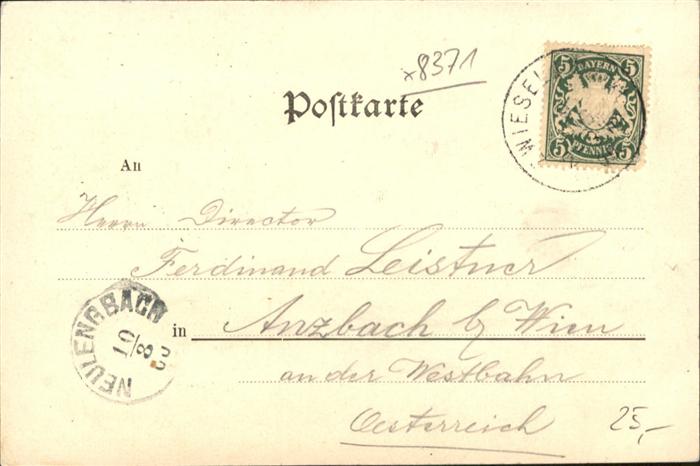 x8371
5 BAYERN 5
5 PFENNIG 5
WIESEL
Postkarte
An
Herrn Director
Ferdinand Leistner
in Anzbach b/ Wien
an der Westbahn
Oesterreich
NEULENGBACH
10/8 00
25,-